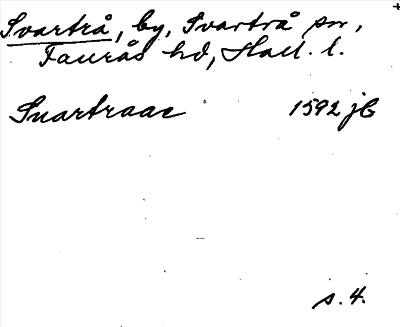 Svartrå, by, Svartrå sn,
Faurås hd, Hall. l.
Suartraae 1592 jb
s. 4.